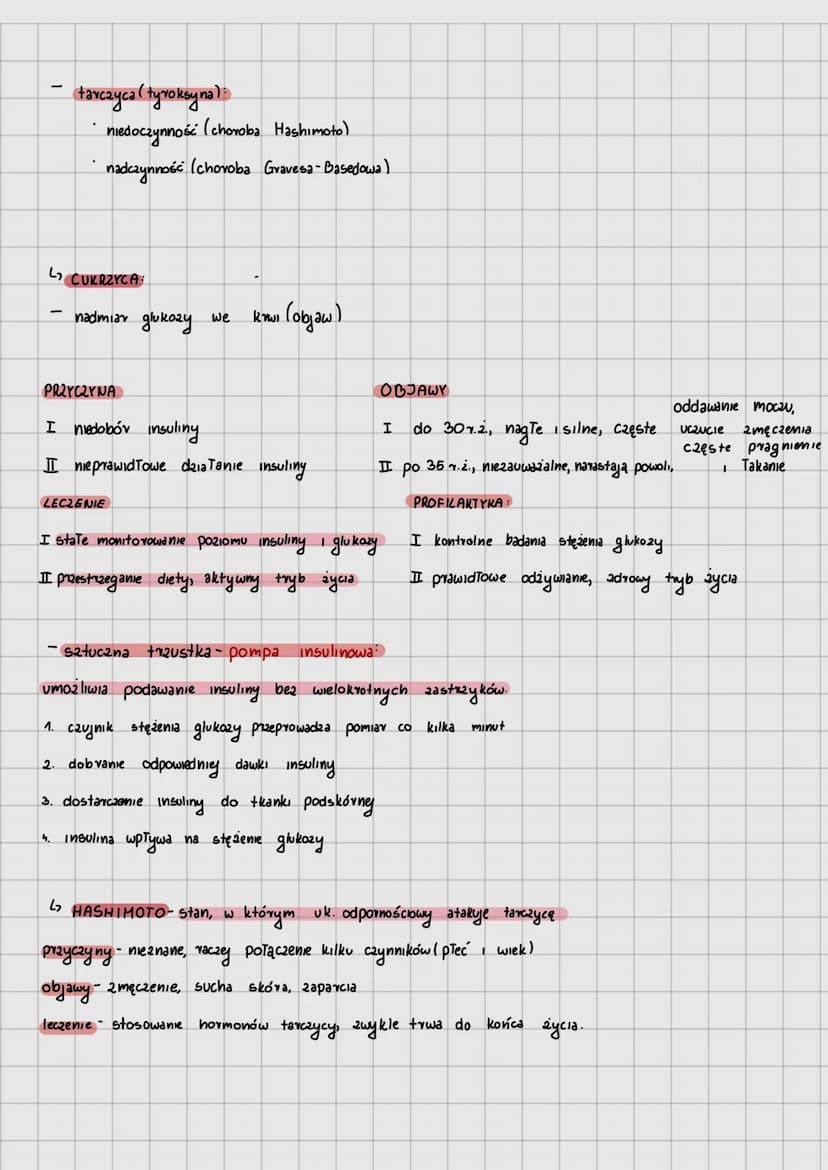 - tarczyca (tyroksyna):
· niedoczynność (choroba Hashimoto)
· nadczynność (choroba Gravesa-Basedowa)
↳ CUKRZYCA:
- nadmiar glukozy we krwi (objaw)
PRZYCZYNA
I niedobór insuliny
II nieprawidłowe działanie insuliny
OBJAWY
I do 30 r.ż, nagłe i silne, częste
II po 35 r.ż., niezauważalne, narastają powoli,
oddawanie moczu,
uczucie zmęczenia
częste pragnienie
i łakanie
LECZENIE
I stałe monitorowanie poziomu insuliny i glukozy
II przestrzeganie diety, aktywny tryb życia
PROFILAKTYKA:
I kontrolne badania stężenia glukozy
II prawidłowe odżywianie, zdrowy tryb życia
- sztuczna trzustka - pompa insulinowa:
umożliwia podawanie insuliny bez wielokrotnych zastrzyków.
1. czujnik stężenia glukozy przeprowadza pomiar co kilka minut
2. dobranie odpowiedniej dawki insuliny
3. dostarczenie insuliny do tkanki podskórnej
4. insulina wpływa na stężenie glukozy
↳ HASHIMOTO - stan, w którym uk. odpornościowy atakuje tarczycę
przyczyny - nieznane, raczej połączenie kilku czynników (płeć i wiek)
objawy - zmęczenie, sucha skóra, zaparcia
leczenie - stosowanie hormonów tarczycy, zwykle trwa do końca życia.